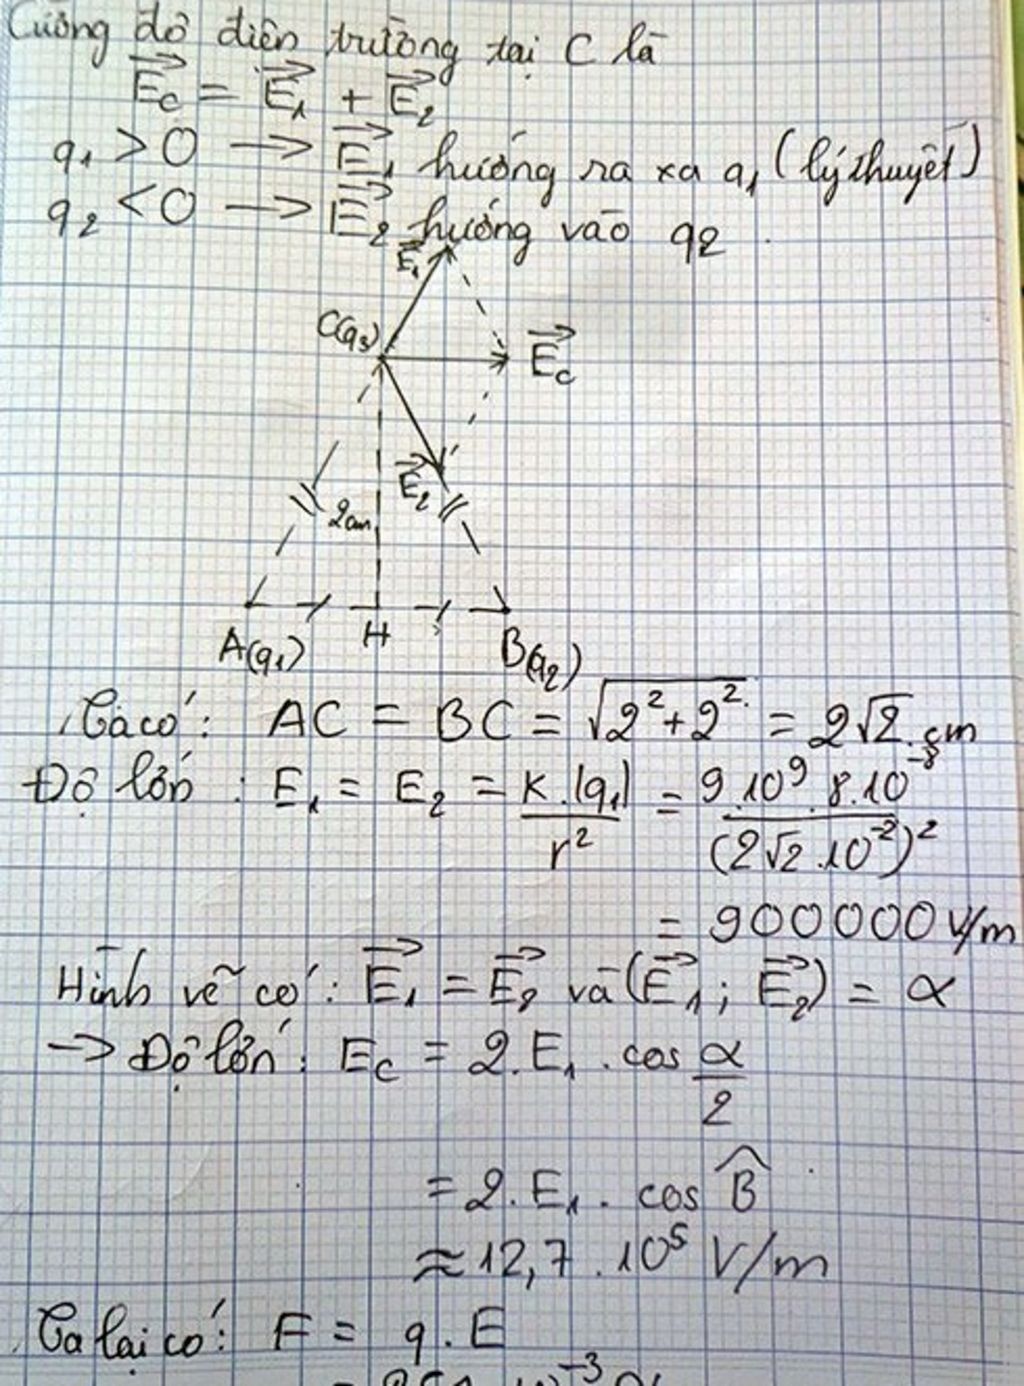 Cường độ điện trường tại C là
E⃗c = E⃗1 + E⃗2
q1 > 0 → E⃗1 hướng ra xa q1 (lý thuyết)
q2 < 0 → E⃗2 hướng vào q2
E⃗1
C(q3)
E⃗c
E⃗2
2cm
A(q1)
H
B(q2)
Ta có: AC = BC = √(2² + 2²) = 2√2 cm
Độ lớn: E1 = E2 = K.|q1| / r² = 9.10⁹.8.10⁻⁸ / (2√2.10⁻²)²
= 900000 V/m
Hình vẽ có: E⃗1 = E⃗2 và (E⃗1; E⃗2) = α
→ Độ lớn: Ec = 2.E1.cos α/2
= 2.E1.cos B̂
≈ 12,7.10⁵ V/m
Ta lại có: F = q.E